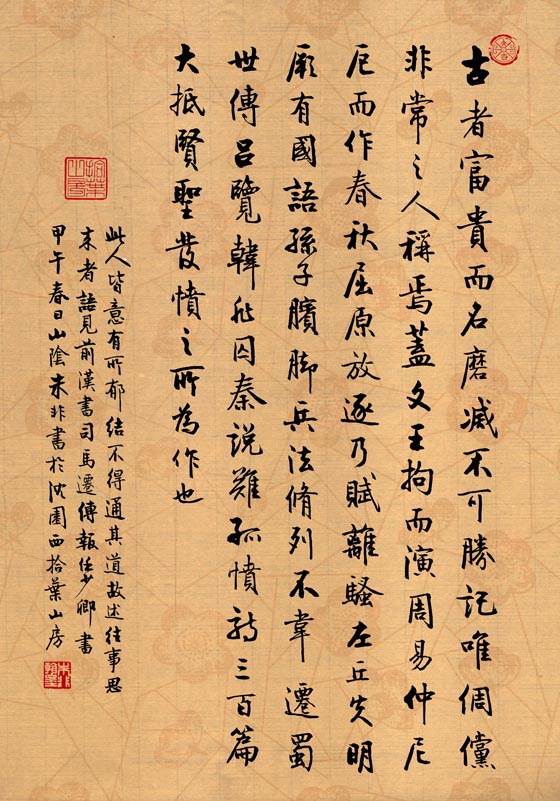 古者富貴而名磨滅不可勝記唯倜儻
非常之人稱焉蓋文王拘而演周易仲尼
厄而作春秋屈原放逐乃賦離騷左丘失明
厥有國語孫子臏脚兵法脩列不韋遷蜀
世傳呂覽韓非囚秦說難孤憤詩三百篇
大抵賢聖發憤之所為作也
此人皆意有所郁結不得通其道故述往事思
來者語見前漢書司馬遷傳報任少卿書
甲午春日山陰未非書於沈園西拾葉山房
拾葉山房